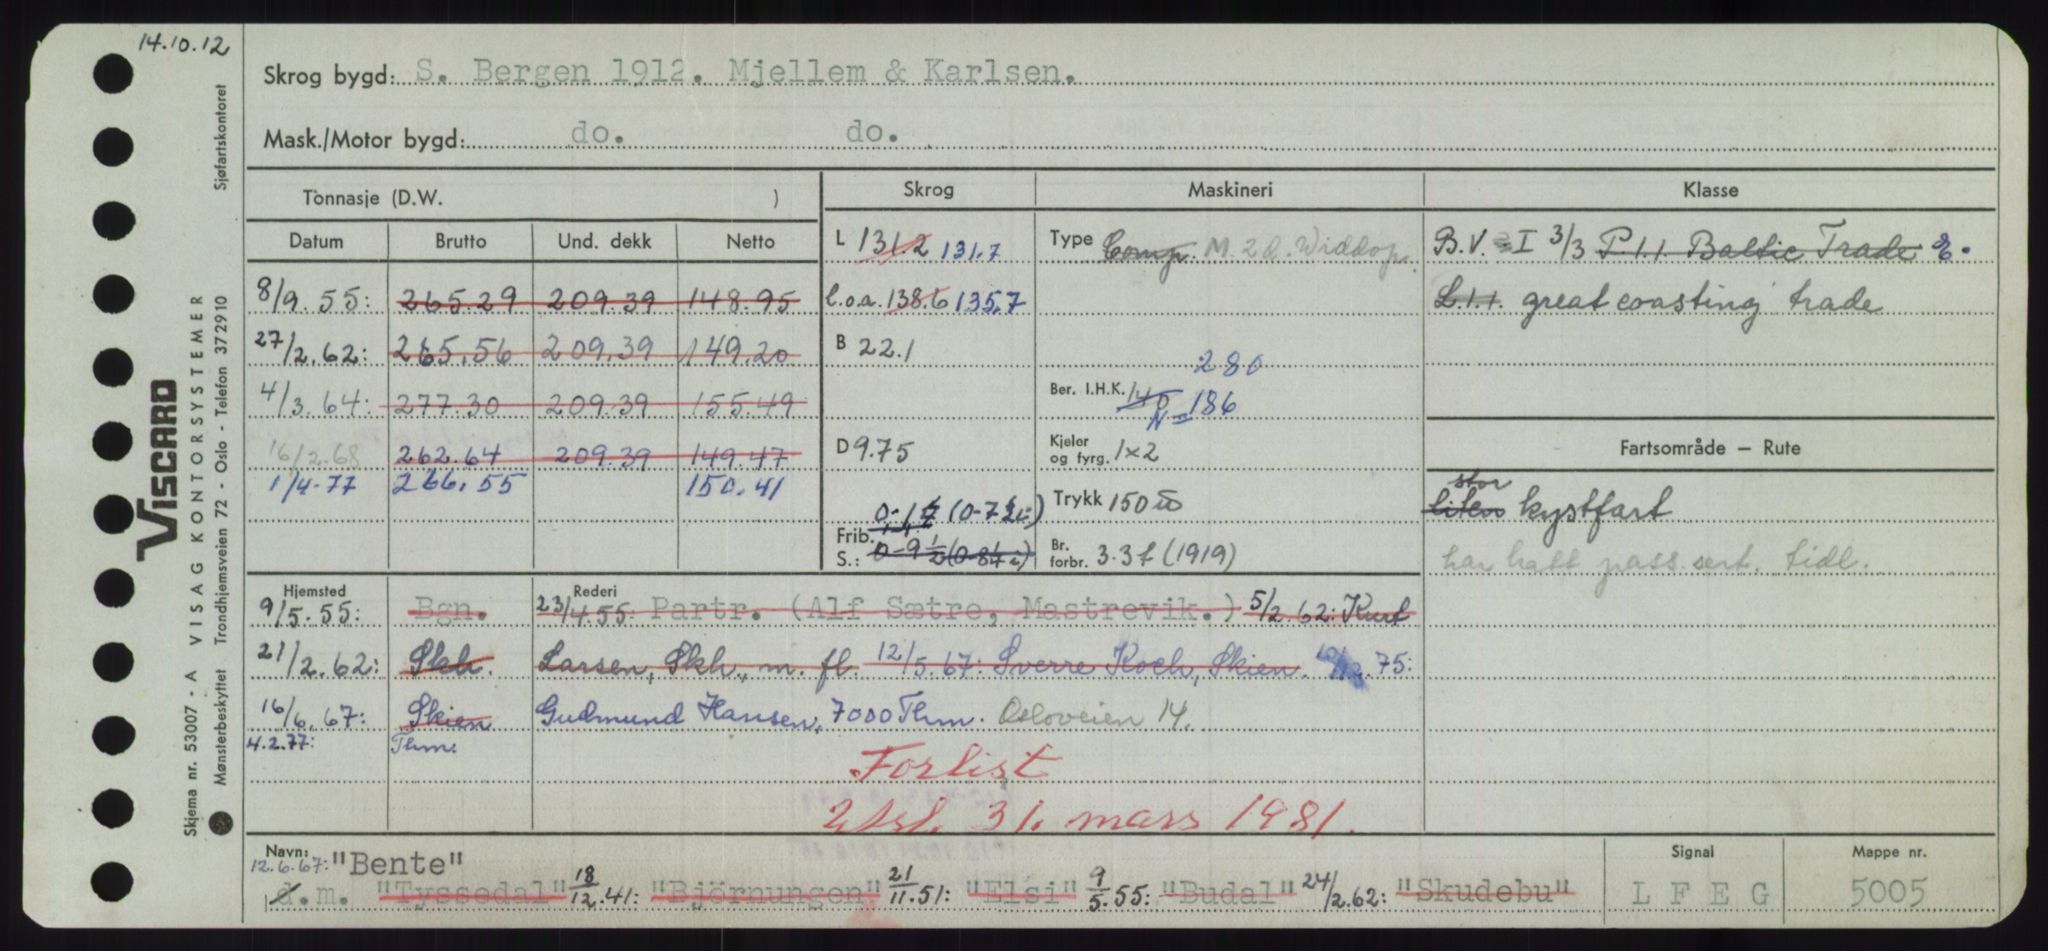 14.10.12
Skrog bygd: S. Bergen 1912. Mjellem & Karlsen.
Mask./Motor bygd: do. do.
Tonnasje (D.W. )
Skrog
Maskineri
Klasse
Datum Brutto Und. dekk Netto
8/9.55: 265.29 209.39 148.95
27/2.62: 265.56 209.39 149.20
4/3.64: 277.30 209.39 155.49
16/2-68 262.64 209.39 149.47
1/4-77 266.55 150.41
L 131.2 131.7
l.o.a. 138.6 135,7
B 22.1
D 9.75
0-1 (0-7
Frib. S.: 0-9½ (0-8
Type Comp. M. 2 d. Widdop.
280
Ber. I.H.K. 140
N= 186
Kjeler og fyrg. 1x2
Trykk 150
Br. forbr. 3.3t (1919)
B.V. I 3/3 P.1.1. Baltic Trade
L.1.1. great coasting trade
Fartsområde — Rute
stor
liten kystfart
har hatt pass.sert. tidl.
Hjemsted
Rederi
9/5.55: Bgn. 23/4.55: Partr. (Alf Sætre, Mastrevik.) 5/2.62: Kurt
21/2.62: Skh. Larsen, Skh., m. fl. 12/5.67: Sverre Koch, Skien. 75:
16/6.67: Skien Gudmund Hansen, 7000 Thm. Osloveien 14.
4.2.77: Thm.
Forlist
2/1sl. 31. mars 1981.
Navn:
12.6.67: "Bente"
d.m. "Tyssedal" 18/12.41: "Björnungen", 21/11.51: "Elsi" 9/5.55: "Budal" 24/2.62: "Skudebu"
Signal
L F E G
Mappe nr.
5005
Viscard
Skjema nr. 53007 - A VISAG KONTORSYSTEMER
Mønsterbeskyttet Trondhjemsveien 72 - Oslo - Telefon 372910 Sjøfartskontoret